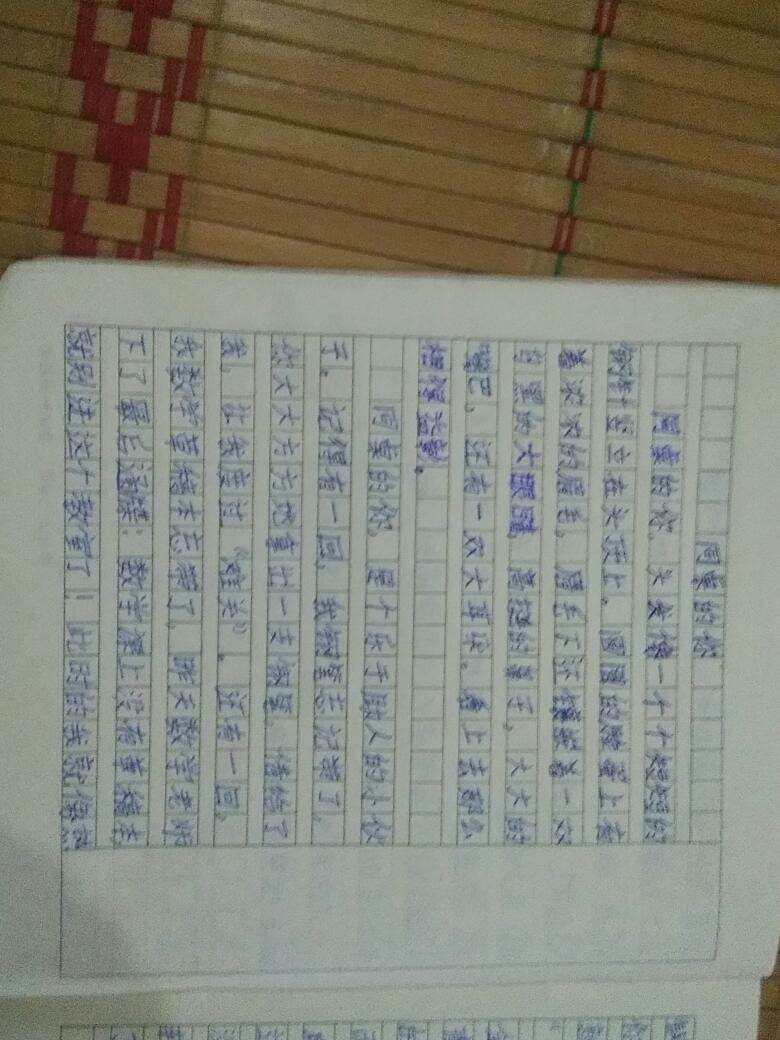 同桌的你
同桌的你，头发像一个个短短的
钢针竖立在头顶上。圆圆的脸蛋上有
着浓浓的眉毛，眉毛下还镶嵌着一双
乌黑的大眼睛，高挺的鼻子，大大的
嘴巴，还有一双大耳朵。看上去那么
相得益彰。
同桌的你，是个乐于助人的小伙
子。记得有一回，我钢笔忘记带了，
你大大方方地拿出一支钢笔，借给了
我，让我度过“难关”。还有一回，
我数学草稿本忘带了，昨天数学老师
下了最后通牒：数学课上没有草稿本
就别进这个教室了！此时的我就像热